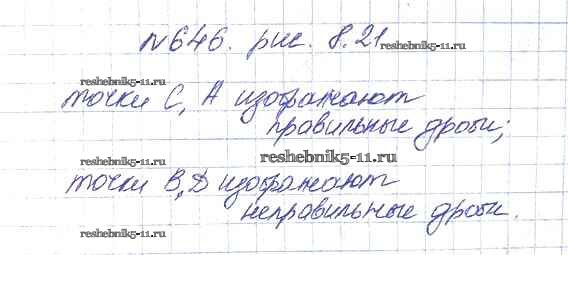 №646. рис. 8.21
reshebnik5-11.ru
reshebnik5-11.ru
точки С, А изображают
правильные дроби;
reshebnik5-11.ru
reshebnik5-11.ru
точки В, D изображают
неправильные дроби.
reshebnik5-11.ru